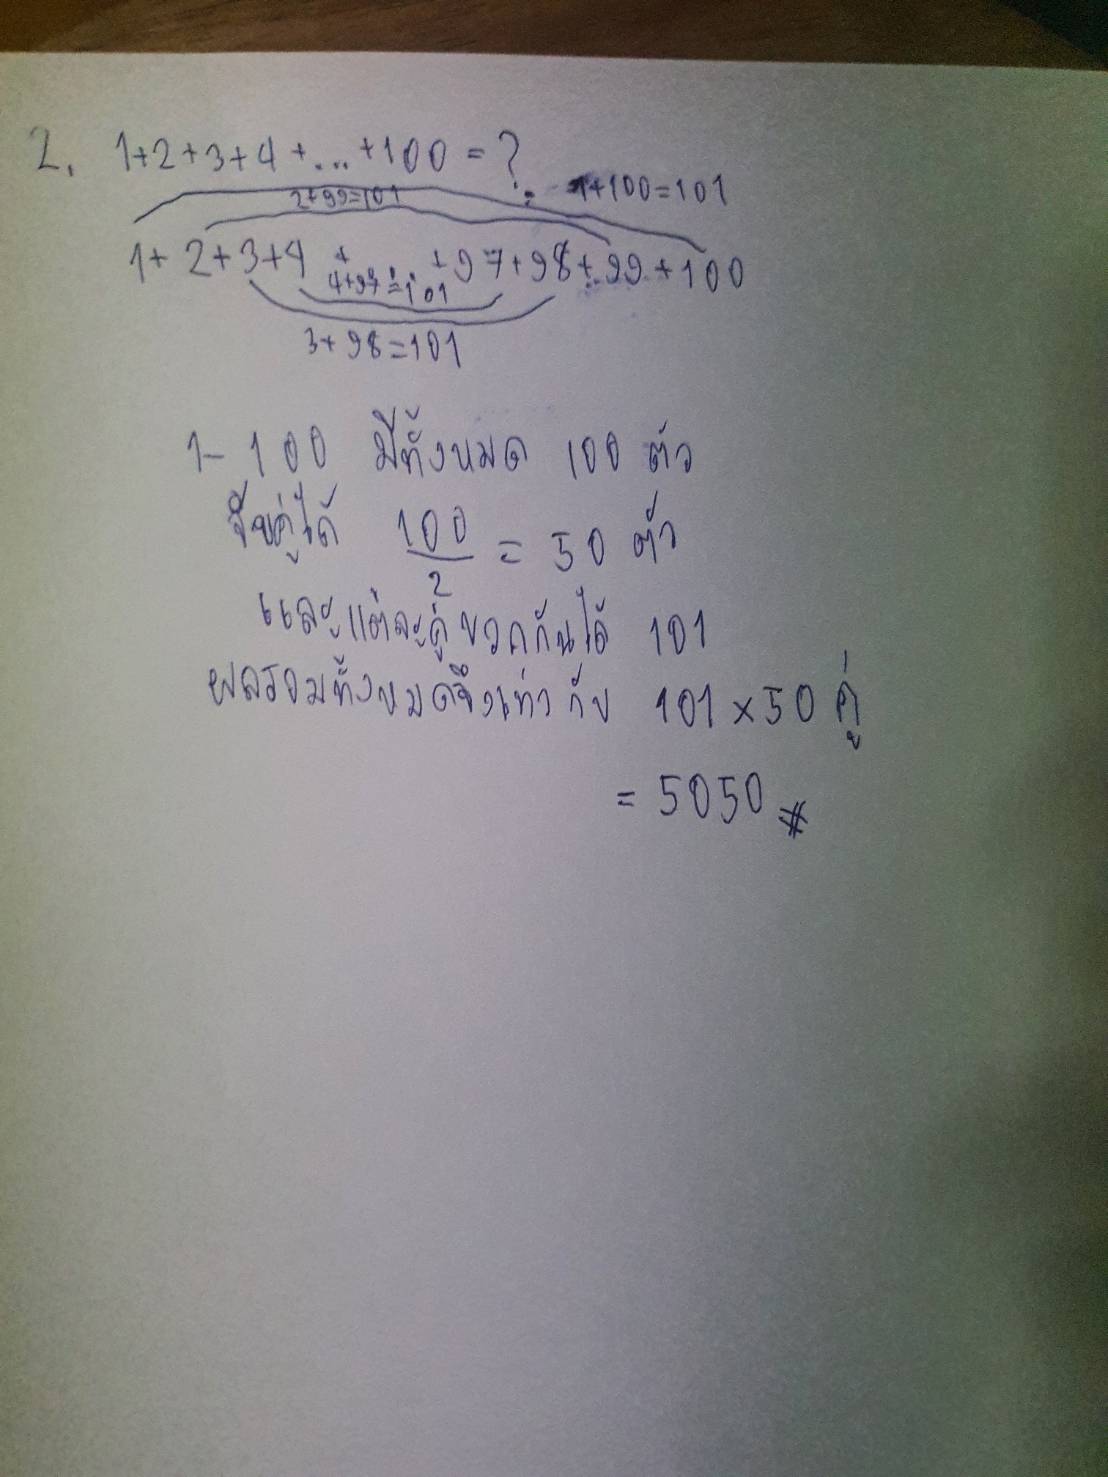 2. 1+2+3+4+...+100 = ?
1+100=101
2+99=101
1+ 2+3+4 + ... +97+98+99+100
4+97=101
3+98=101
1-100 มีทั้งหมด 100 ตัว
จับคู่ได้ 100/2 = 50 ตัว
และแต่ละคู่บวกกันได้ 101
ผลรวมทั้งหมดจึงเท่ากับ 101 × 50 คู่
= 5050 #